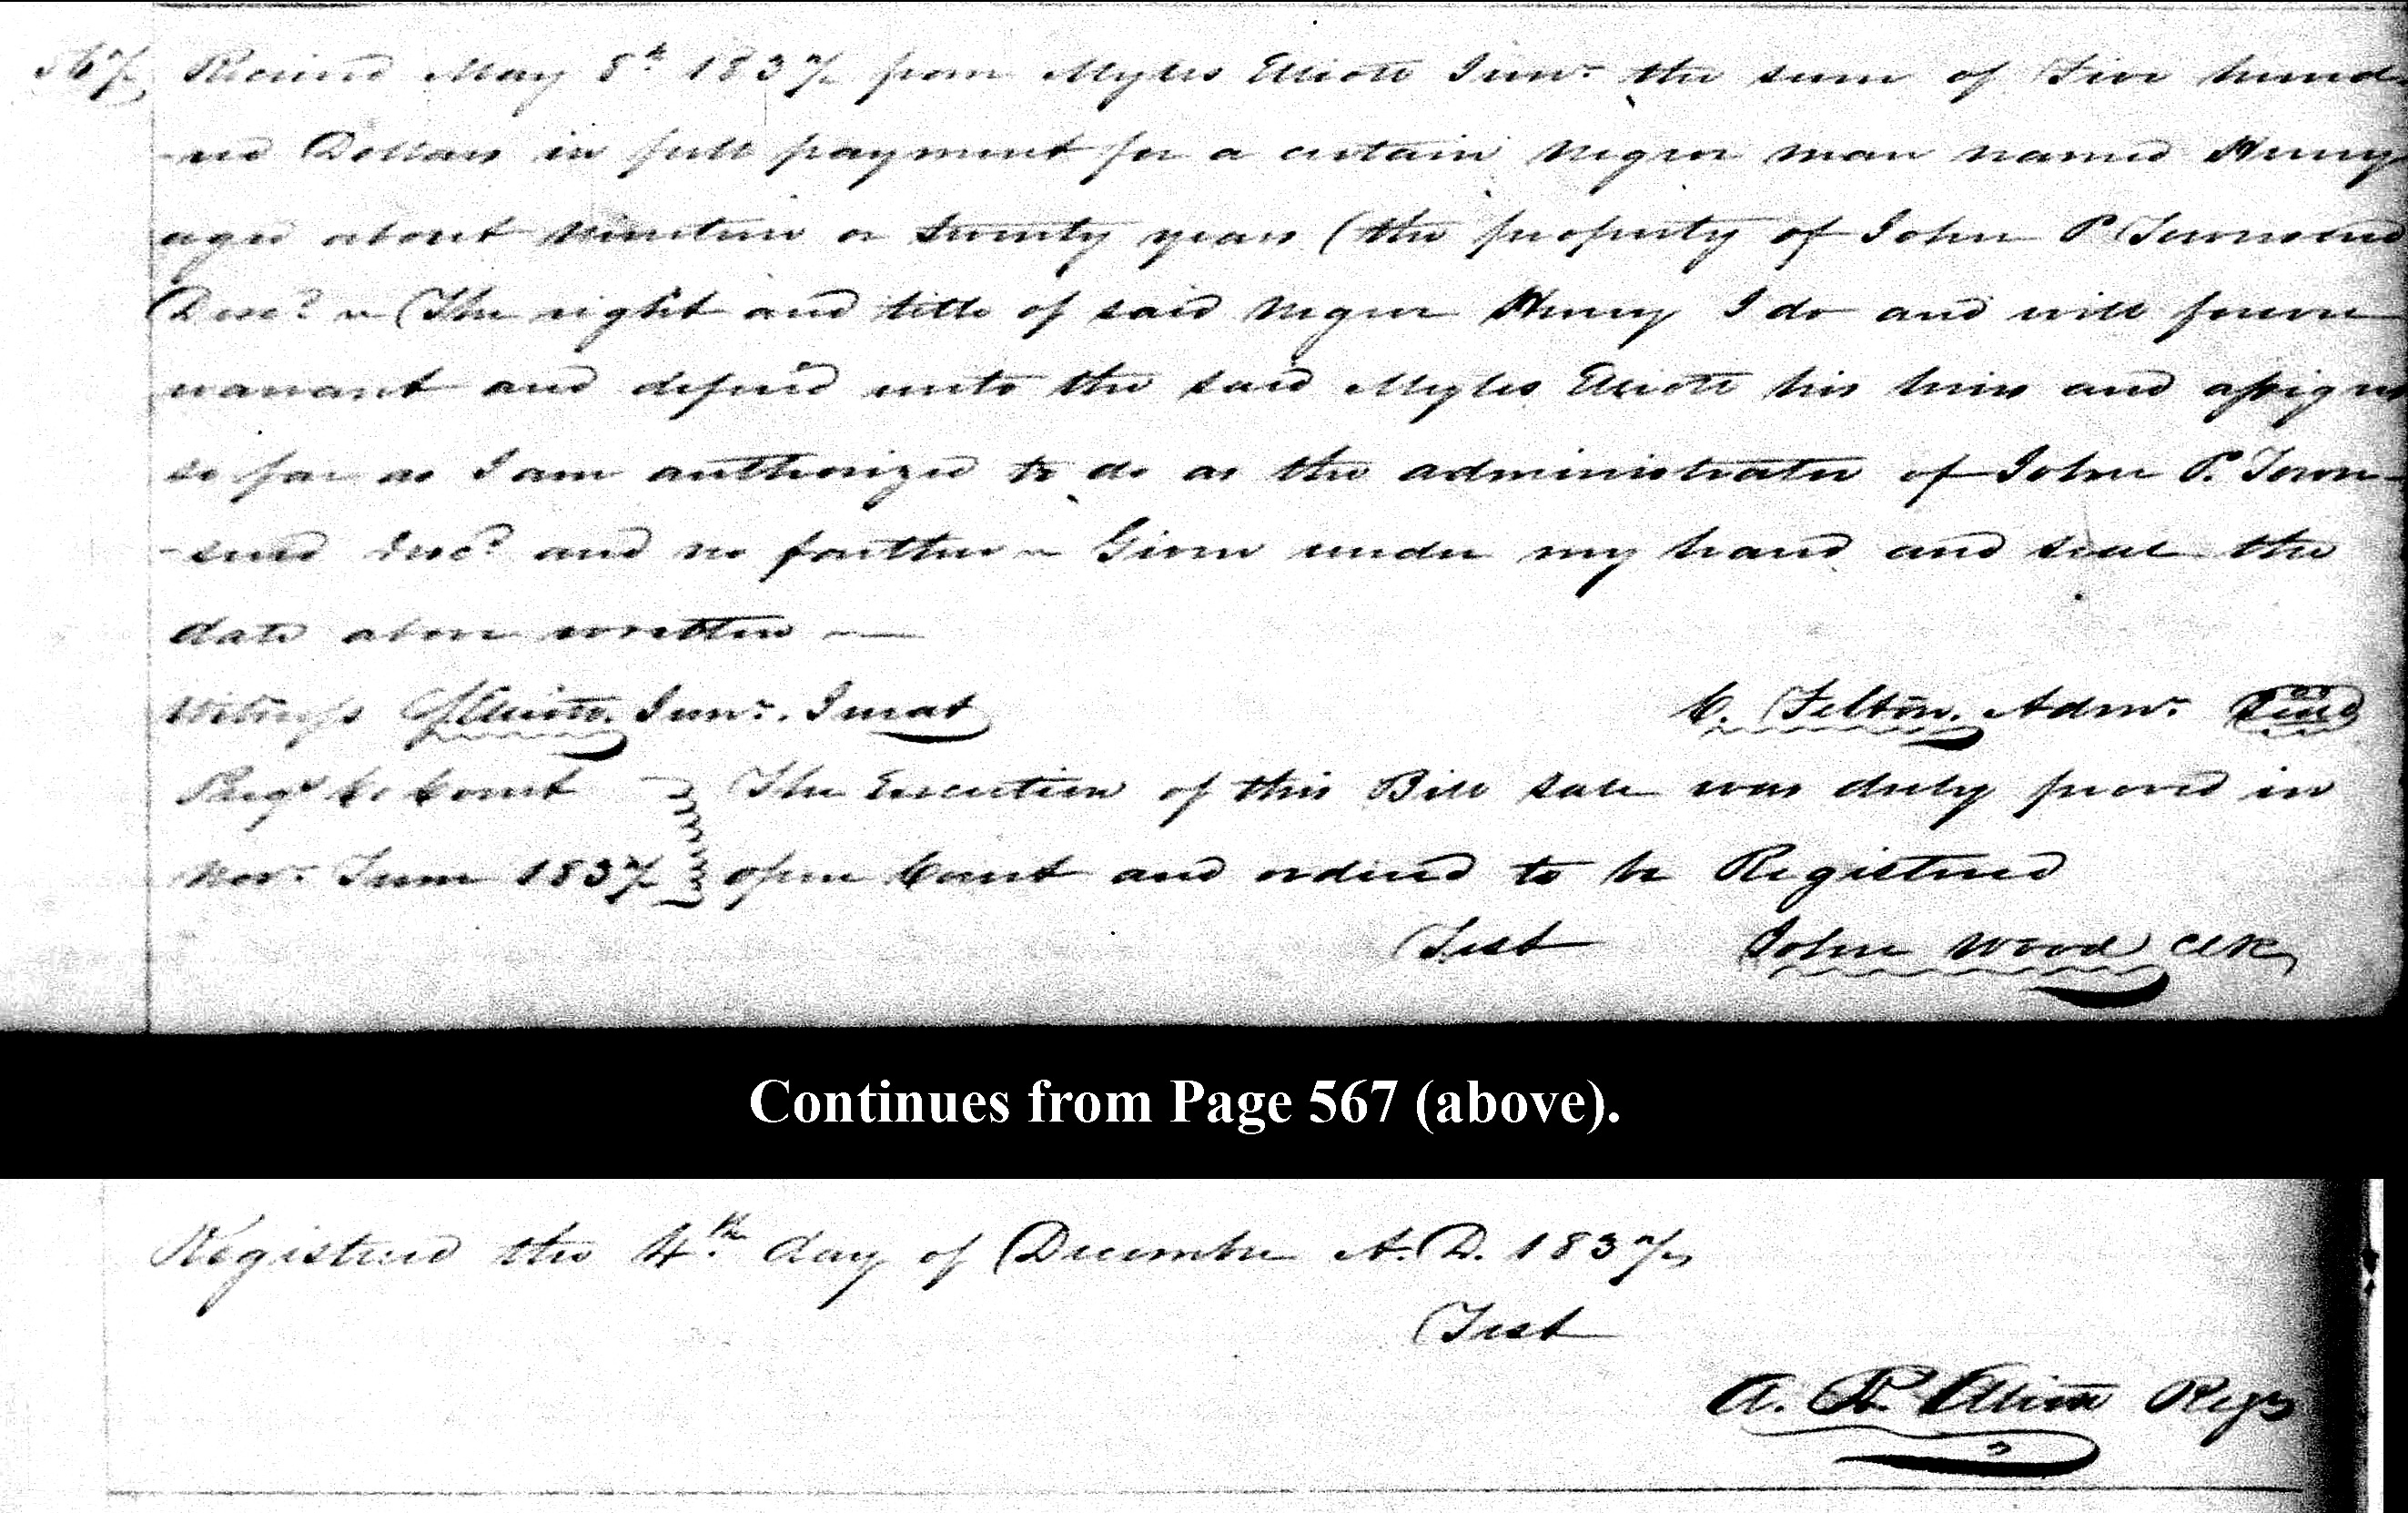 567, Received May 8th 1837 from Myles Elliott Junr. the sum of Five hund
-red Dollars in full payment for a certain negro man named Henry
aged about nineteen or twenty years (the property of John P Townsend
Decd. ~ The right and title of said negro Henry I do and will forever
warrant and defend unto the said Myles Elliott his heirs and assigns
so far as I am authorized to do as the administrator of John P. Town-
-send decd. and no farther ~ Given under my hand and seal the
date above written —
Witness Elliott. Junr. Jurat
C. Felton. Admr. Seal
Perqs Co Court
The Execution of this Bill sale was duly proved in
Nov. Term 1837 open Court and ordered to be Registered
Test John Wood Clk,
Continues from Page 567 (above).
Registered the 4th. day of December A. D. 1837,
Test
A. R. Elliott Regr